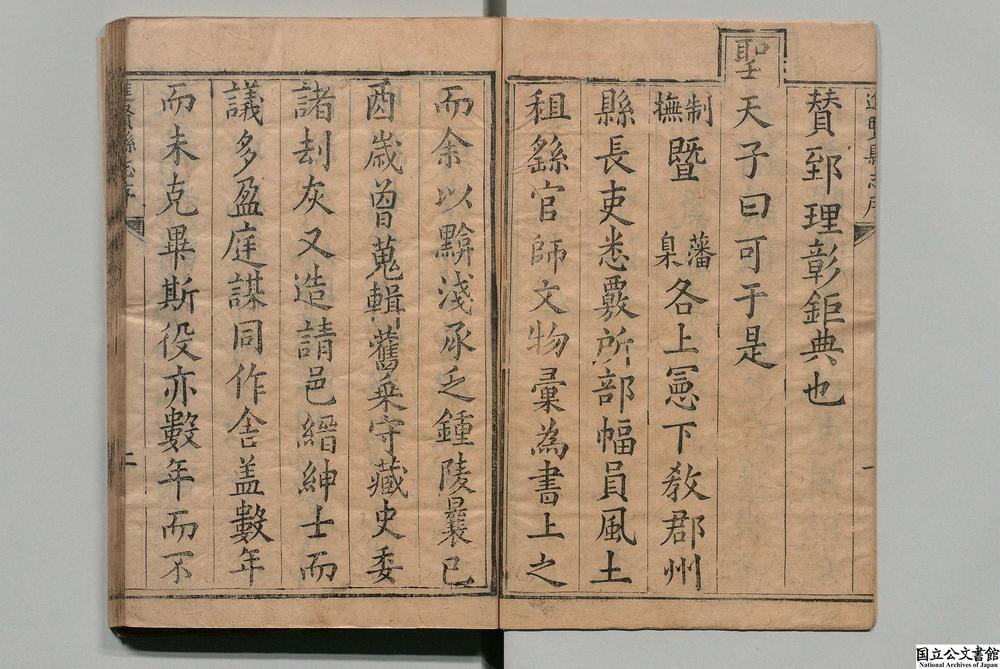 進賢縣志序
贊郅理彰鉅典也
聖
天子曰可于是
制撫暨藩臬各上憲下教郡州
縣長吏悉覈所部幅員風土
租繇官師文物彙為書上之
一
而余以黭淺承乏鍾陵曩已
酉歲曾蒐輯舊乗守藏史委
諸刦灰又造請邑縉紳士而
議多盈庭謀同作舍盖數年
而未克畢斯役亦數年而不
進賢縣志序
二
国立公文書館
National Archives of Japan